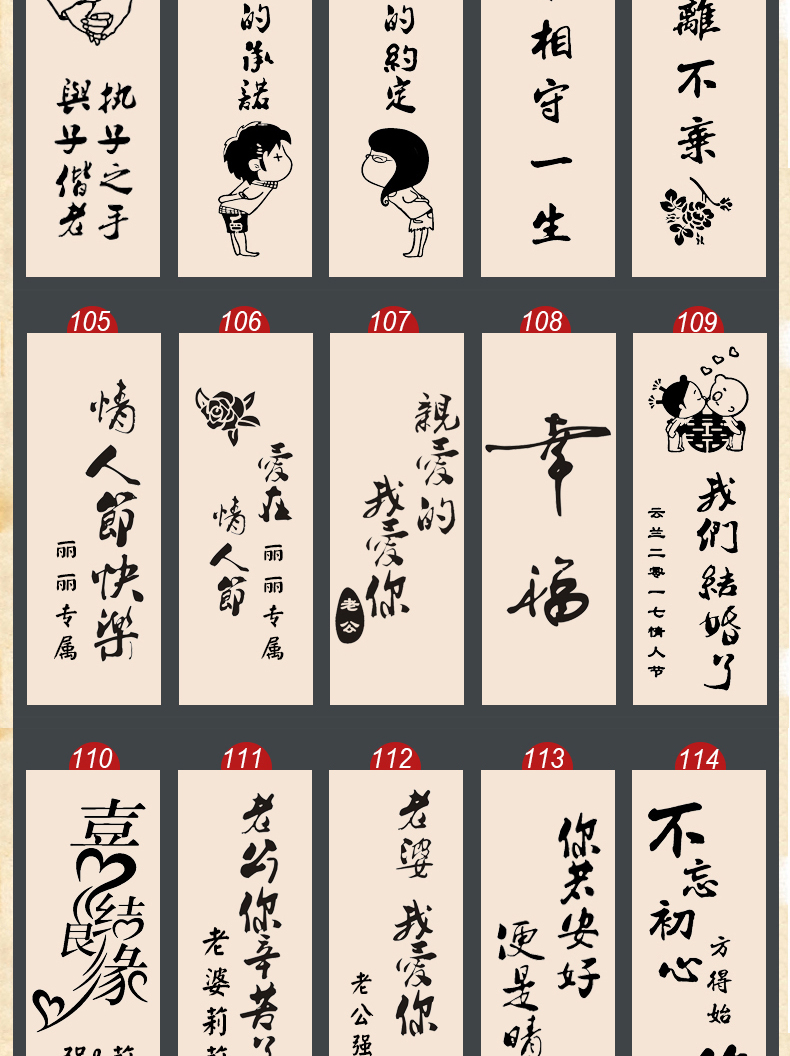 执子之手
與子偕老
的承諾
的約定
相守一生
離不棄
105
106
107
108
109
情人節快樂
丽丽专属
愛在
情人節
丽丽专属
親愛的
我愛你
老公
幸福
我們結婚了
云兰二零一七情人节
110
111
112
113
114
喜结良缘
老公你辛苦了
老婆莉莉
老婆
我愛你
老公强
你若安好
便是晴
不忘
初心
方得始